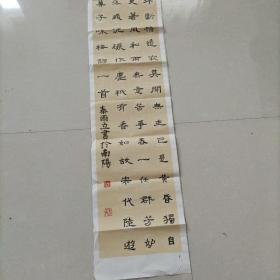 外斷橋邊寂寞開無主已是黄昏獨自
更著風和雨無意苦爭春一任群芳妒
落成泥碾作塵祇有香如故宋代陸遊
算子咏梅詞一首
秦雨立書於南陽